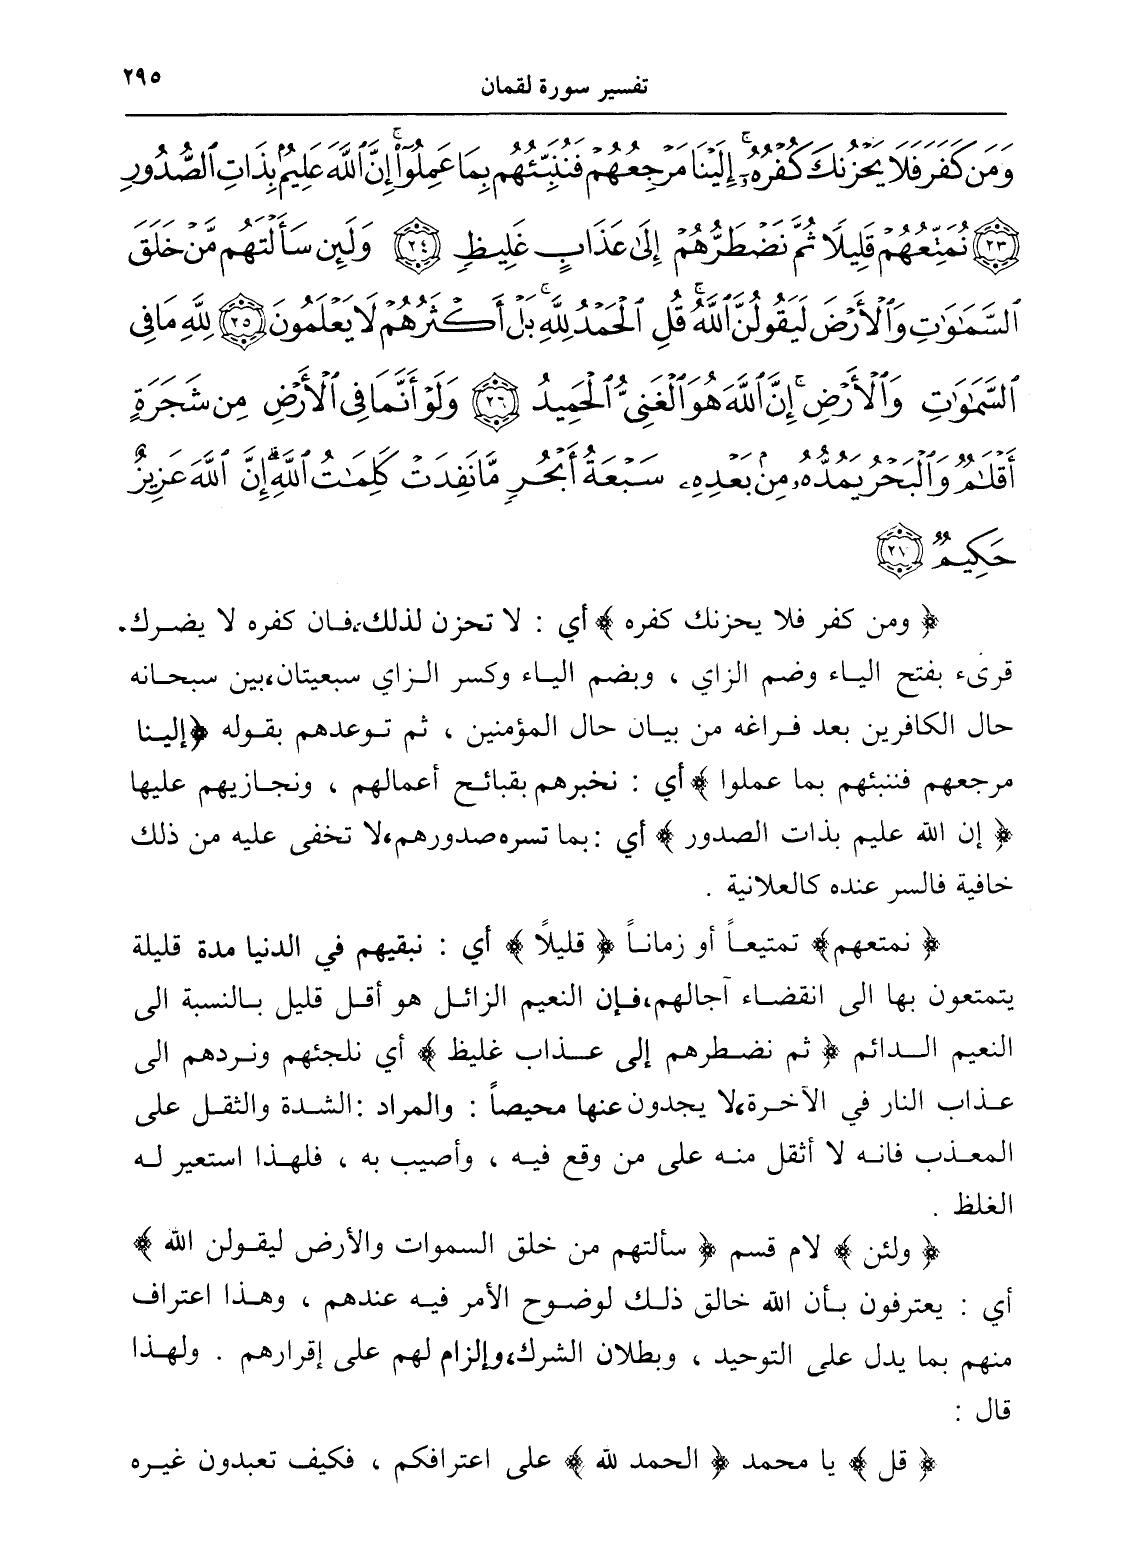 تفسير سورة لقمان ٢٩٥
وَمَن كَفَرَ فَلَا يَحْزُنكَ كُفْرُهُۥٓ ۚ إِلَيْنَا مَرْجِعُهُمْ فَنُنَبِّئُهُم بِمَا عَمِلُوٓا۟ ۚ إِنَّ ٱللَّهَ عَلِيمٌۢ بِذَاتِ ٱلصُّدُورِ
﴿٢٣﴾ نُمَتِّعُهُمْ قَلِيلًا ثُمَّ نَضْطَرُّهُمْ إِلَىٰ عَذَابٍ غَلِيظٍ ﴿٢٤﴾ وَلَئِن سَأَلْتَهُم مَّنْ خَلَقَ
ٱلسَّمَٰوَٰتِ وَٱلْأَرْضَ لَيَقُولُنَّ ٱللَّهُ ۚ قُلِ ٱلْحَمْدُ لِلَّهِ ۚ بَلْ أَكْثَرُهُمْ لَا يَعْلَمُونَ ﴿٢٥﴾ لِلَّهِ مَا فِى
ٱلسَّمَٰوَٰتِ وَٱلْأَرْضِ ۚ إِنَّ ٱللَّهَ هُوَ ٱلْغَنِىُّ ٱلْحَمِيدُ ﴿٢٦﴾ وَلَوْ أَنَّمَا فِى ٱلْأَرْضِ مِن شَجَرَةٍ
أَقْلَٰمٌ وَٱلْبَحْرُ يَمُدُّهُۥ مِنۢ بَعْدِهِۦ سَبْعَةُ أَبْحُرٍ مَّا نَفِدَتْ كَلِمَٰتُ ٱللَّهِ ۗ إِنَّ ٱللَّهَ عَزِيزٌ
حَكِيمٌ ﴿٢٧﴾
﴿ ومن كفر فلا يحزنك كفره ﴾ أي : لا تحزن لذلك، فان كفره لا يضرك.
قرىء بفتح الياء وضم الزاي ، وبضم الياء وكسر الزاي سبعيتان، بين سبحانه
حال الكافرين بعد فراغه من بيان حال المؤمنين ، ثم توعدهم بقوله ﴿إلينا
مرجعهم فننبئهم بما عملوا ﴾ أي : نخبرهم بقبائح أعمالهم ، ونجازيهم عليها
﴿ إن الله عليم بذات الصدور ﴾ أي : بما تسره صدورهم، لا تخفى عليه من ذلك
خافية فالسر عنده كالعلانية .
﴿ نمتعهم﴾ تمتيعاً أو زماناً ﴿ قليلاً ﴾ أي : نبقيهم في الدنيا مدة قليلة
يتمتعون بها الى انقضاء آجالهم، فإن النعيم الزائل هو أقل قليل بالنسبة الى
النعيم الدائم ﴿ ثم نضطرهم إلى عذاب غليظ ﴾ أي نلجئهم ونردهم الى
عذاب النار في الآخرة، لا يجدون عنها محيصاً : والمراد : الشدة والثقل على
المعذب فانه لا أثقل منه على من وقع فيه ، وأصيب به ، فلهذا استعير له
الغلظ .
﴿ ولئن ﴾ لام قسم ﴿ سألتهم من خلق السموات والأرض ليقولن الله ﴾
أي : يعترفون بأن الله خالق ذلك لوضوح الأمر فيه عندهم ، وهذا اعتراف
منهم بما يدل على التوحيد ، وبطلان الشرك، وإلزام لهم على إقرارهم . ولهذا
قال :
﴿ قل ﴾ يا محمد ﴿ الحمد لله ﴾ على اعترافكم ، فكيف تعبدون غيره